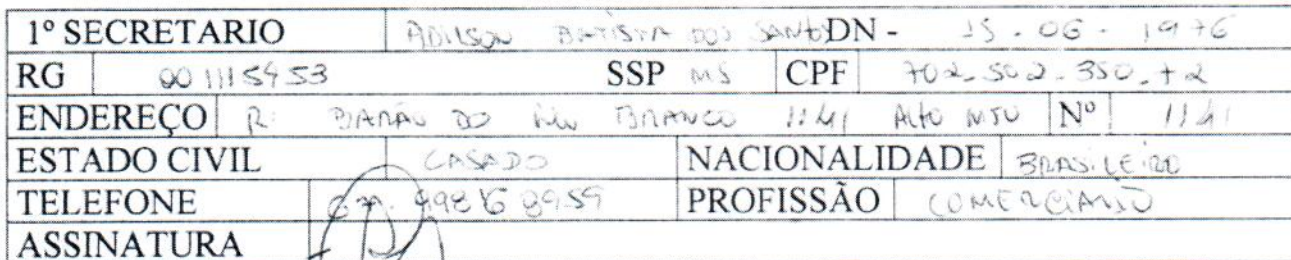 1º SECRETARIO ADILSON BATISTA DOS SANTOS DN - 15 . 06 . 1976
RG 001115953 SSP MS CPF 702.502.350.72
ENDEREÇO R: BARÃO DO RIO BRANCO 1141 Alto Nº 1141
ESTADO CIVIL CASADO NACIONALIDADE BRASILEIRO
TELEFONE PROFISSÃO COMERCIANTE
ASSINATURA